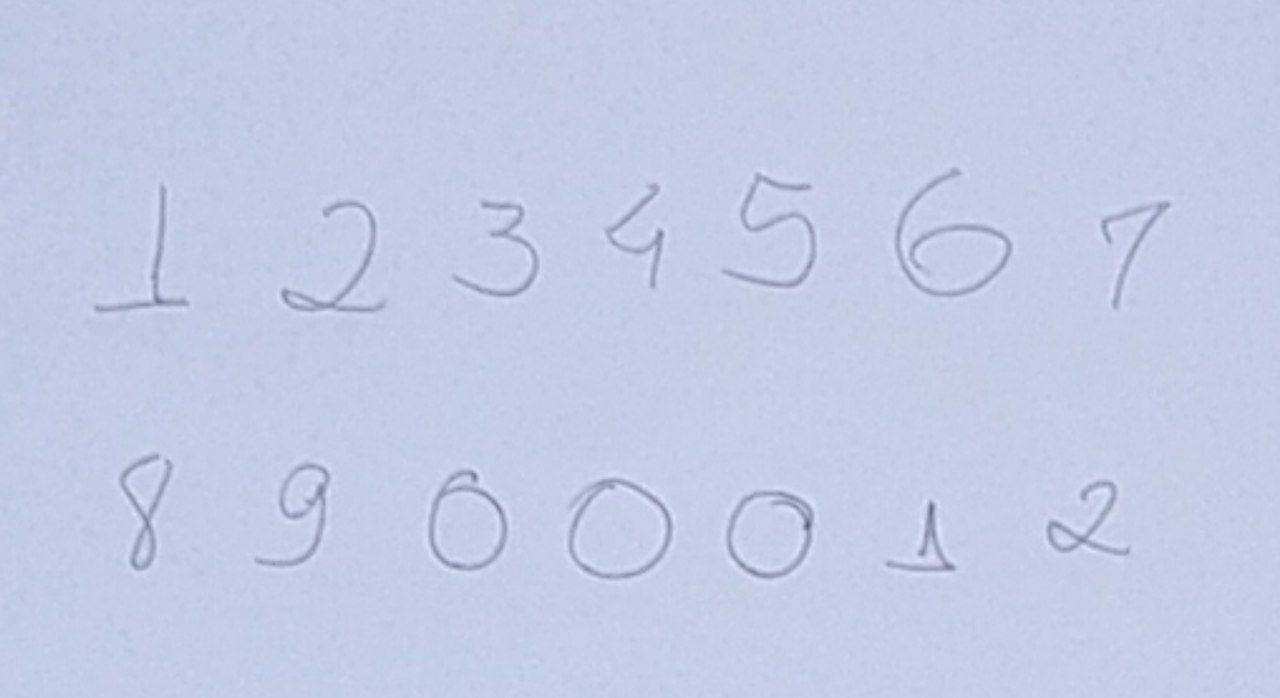 1 2 3 4 5 6 7
8 9 0 0 0 1 2